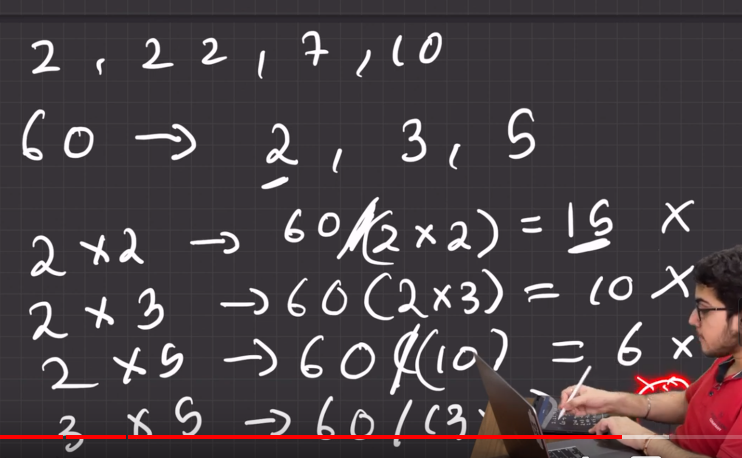 2, 22, 7, 10
60 → 2, 3, 5
2 × 2 → 60/(2 × 2) = 15 ×
2 × 3 → 60(2×3) = 10 ×
2 × 5 → 60/(10) = 6 ×
3 × 5 → 60/(3